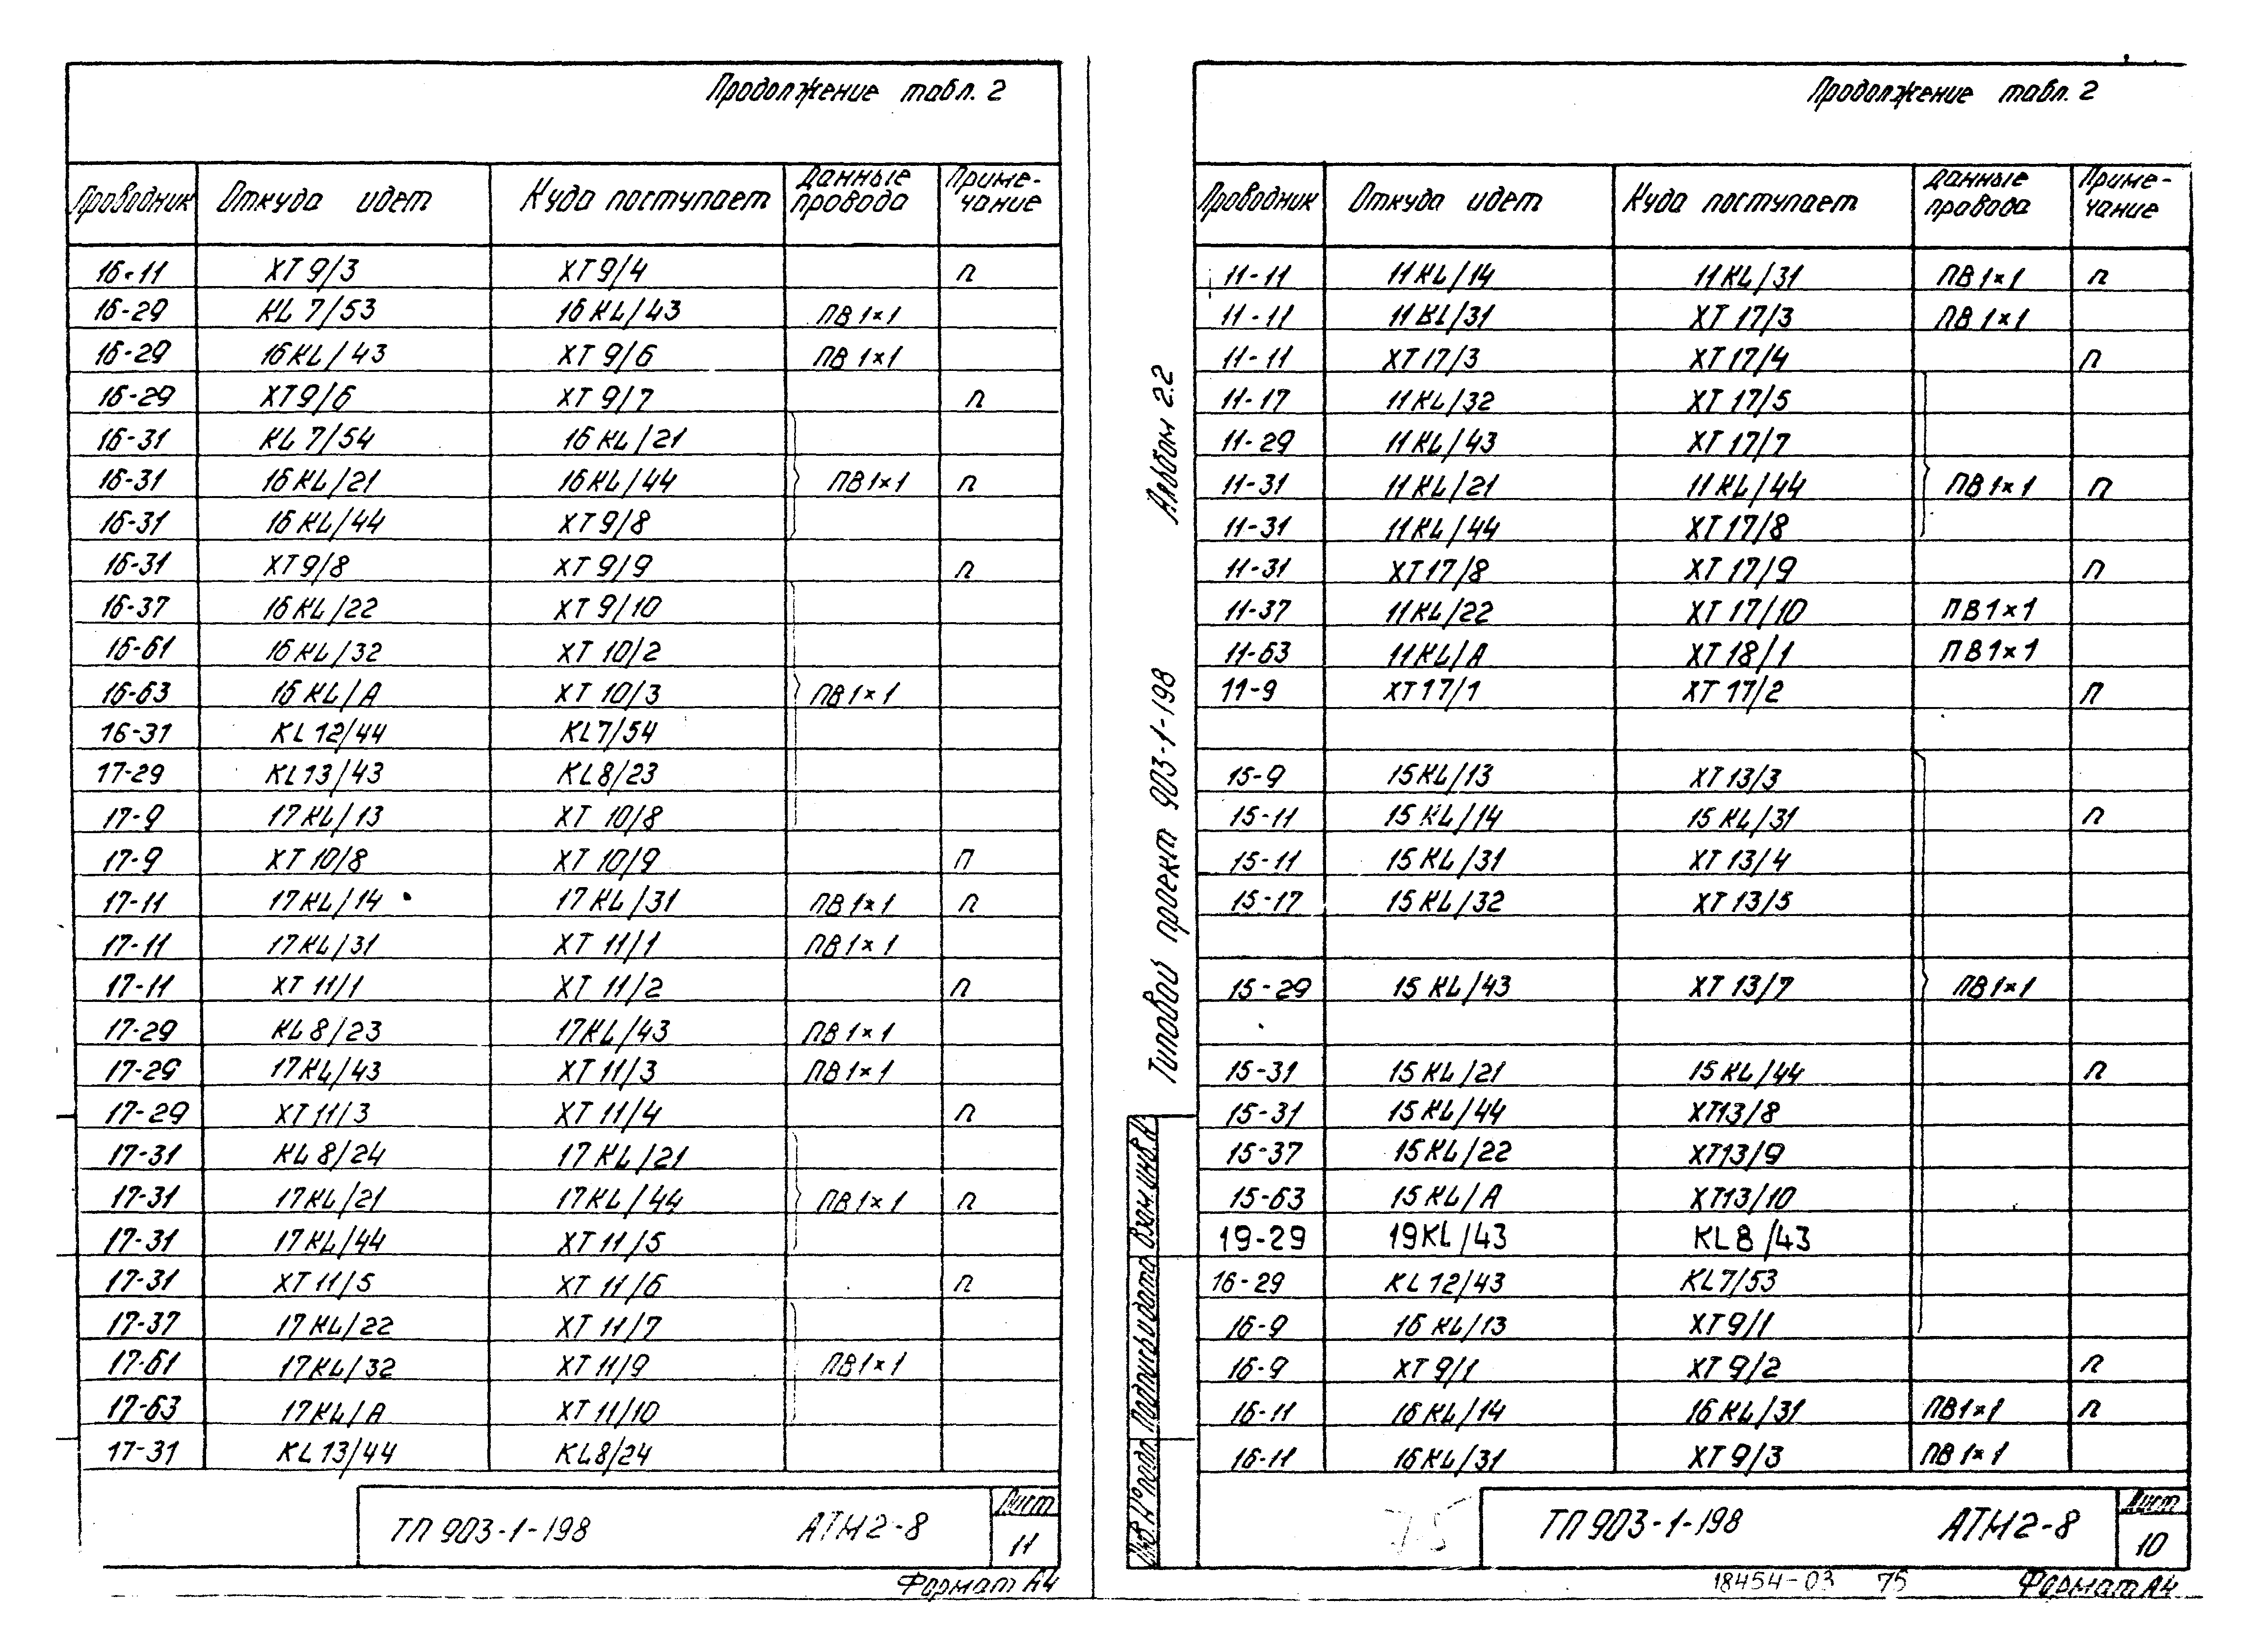 Продолжение табл. 2
Проводник Откуда идет Куда поступает Данные провода Приме-чание
16-11 XT9/3 XT9/4 п
16-29 KL7/53 16KL/43 ПВ1×1
16-29 16KL/43 XT9/6 ПВ1×1
16-29 XT9/6 XT9/7 п
16-31 KL7/54 16KL/21
16-31 16KL/21 16KL/44 ПВ1×1 п
16-31 16KL/44 XT9/8
16-31 XT9/8 XT9/9 п
16-37 16KL/22 XT9/10
16-61 16KL/32 XT10/2
16-63 16KL/A XT10/3 ПВ1×1
16-31 KL12/44 KL7/54
17-29 KL13/43 KL8/23
17-9 17KL/13 XT10/8
17-9 XT10/8 XT10/9 п
17-11 17KL/14 17KL/31 ПВ1×1 п
17-11 17KL/31 XT11/1 ПВ1×1
17-11 XT11/1 XT11/2 п
17-29 KL8/23 17KL/43 ПВ1×1
17-29 17KL/43 XT11/3 ПВ1×1
17-29 XT11/3 XT11/4 п
17-31 KL8/24 17KL/21
17-31 17KL/21 17KL/44 ПВ1×1 п
17-31 17KL/44 XT11/5
17-31 XT11/5 XT11/6 п
17-37 17KL/22 XT11/7
17-61 17KL/32 XT11/9 ПВ1×1
17-63 17KL/A XT11/10
17-31 KL13/44 KL8/24
ТП 903-1-198 АТМ2-8 Лист
11
Формат А4
Продолжение табл. 2
Проводник Откуда идет Куда поступает Данные провода Приме-чание
11-11 11KL/14 11KL/31 ПВ1×1 п
11-11 11KL/31 XT17/3 ПВ1×1
11-11 XT17/3 XT17/4 п
11-17 11KL/32 XT17/5
11-29 11KL/43 XT17/7
11-31 11KL/21 11KL/44 ПВ1×1 п
11-31 11KL/44 XT17/8
11-31 XT17/8 XT17/9 п
11-37 11KL/22 XT17/10 ПВ1×1
11-63 11KL/A XT18/1 ПВ1×1
11-9 XT17/1 XT17/2 п
15-9 15KL/13 XT13/3
15-11 15KL/14 15KL/31 п
15-11 15KL/31 XT13/4
15-17 15KL/32 XT13/5
15-29 15KL/43 XT13/7 ПВ1×1
15-31 15KL/21 15KL/44 п
15-31 15KL/44 XT13/8
15-37 15KL/22 XT13/9
15-63 15KL/A XT13/10
19-29 19KL/43 KL8/43
16-29 KL12/43 KL7/53
16-9 16KL/13 XT9/1
16-9 XT9/1 XT9/2 п
16-11 16KL/14 16KL/31 ПВ1×1 п
16-11 16KL/31 XT9/3 ПВ1×1
ТП 903-1-198 АТМ2-8 Лист
10
18454-03 75 Формат А4
75
Типовой проект 903-1-198 Альбом 2.2
Инв. № подл. Подпись и дата Взам. инв. №